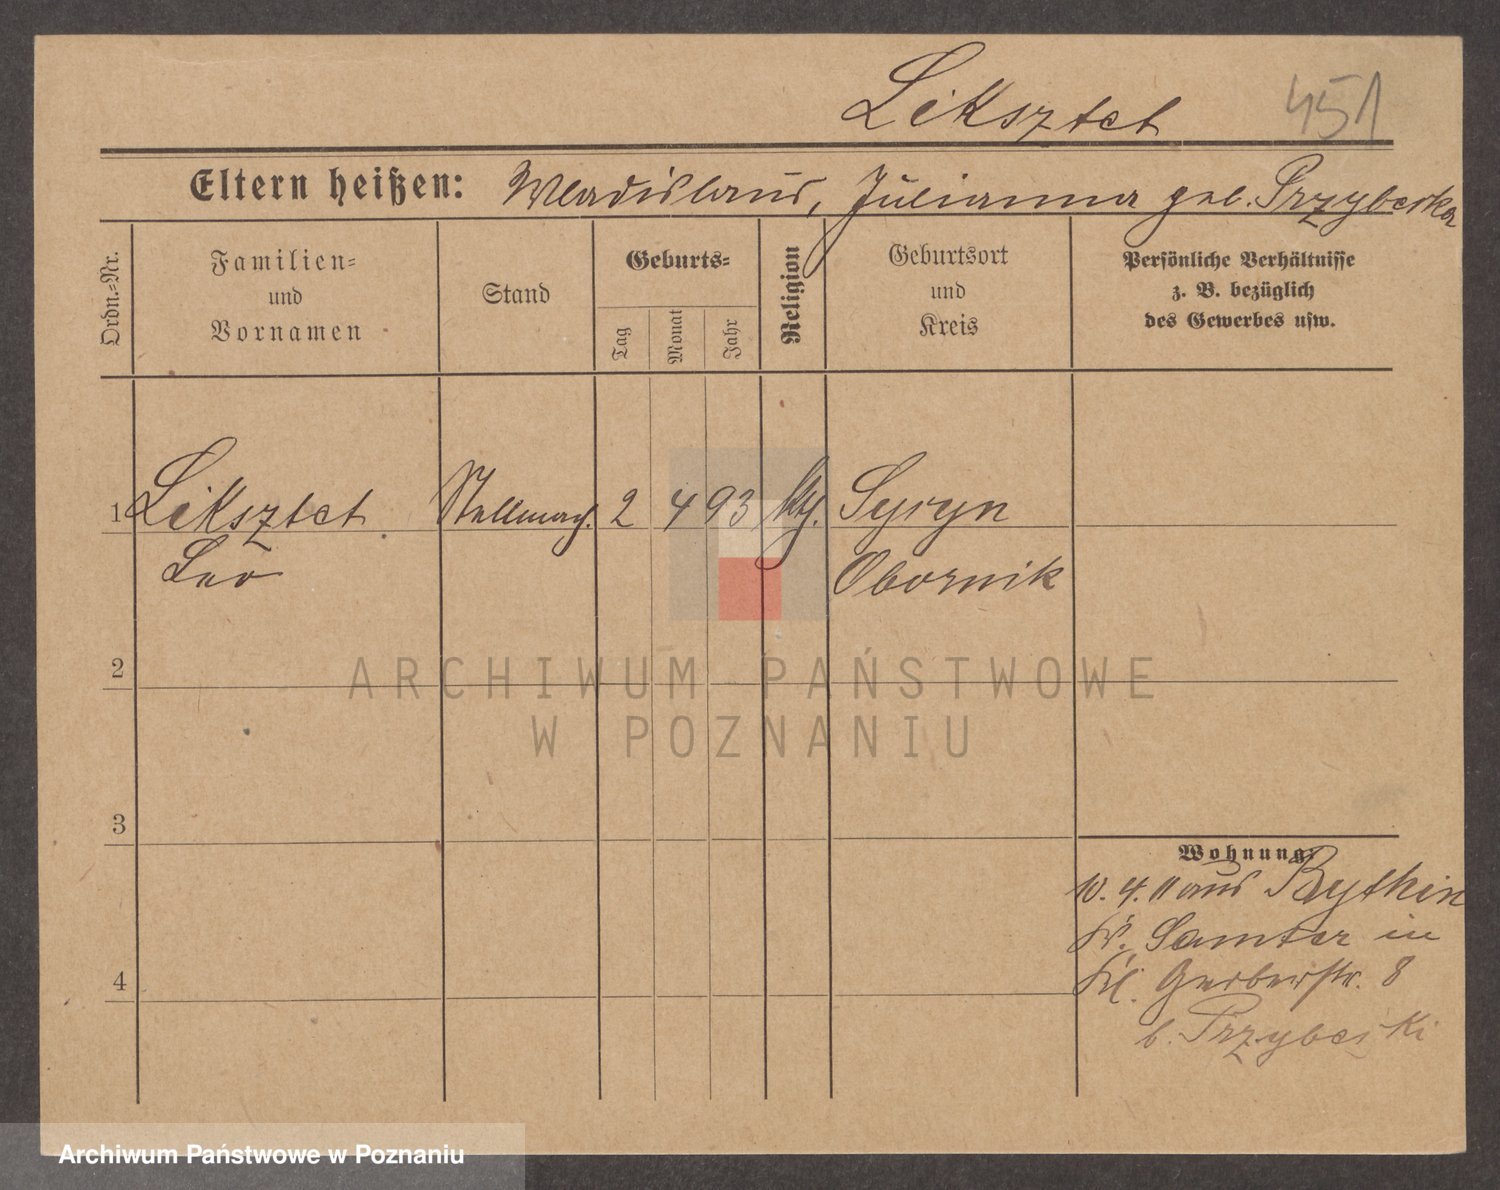 Liksztet 451
Eltern heißen: Wladislaus, Julianna geb. Przybeska
Ordn.=Nr.
Familien=
und
Vornamen
Stand
Geburts=
Tag
Monat
Jahr
Religion
Geburtsort
und
Kreis
Persönliche Verhältnisse
z. B. bezüglich
des Gewerbes usw.
1 Liksztet Stellmach. 2 4 93 kth. Syryn
Leo Obornik
2
ARCHIWUM PAŃSTWOWE
W POZNANIU
3
Wohnung:
10. 4. 11 aus Bythin
Kr. Samter in
Kl. Gerberstr. 8
b. Przybeski
4
Archiwum Państwowe w Poznaniu